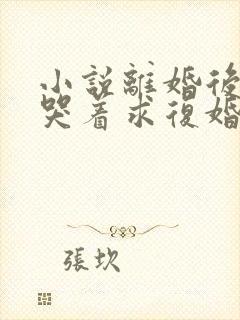 小説離婚後
哭着求復婚
張坎